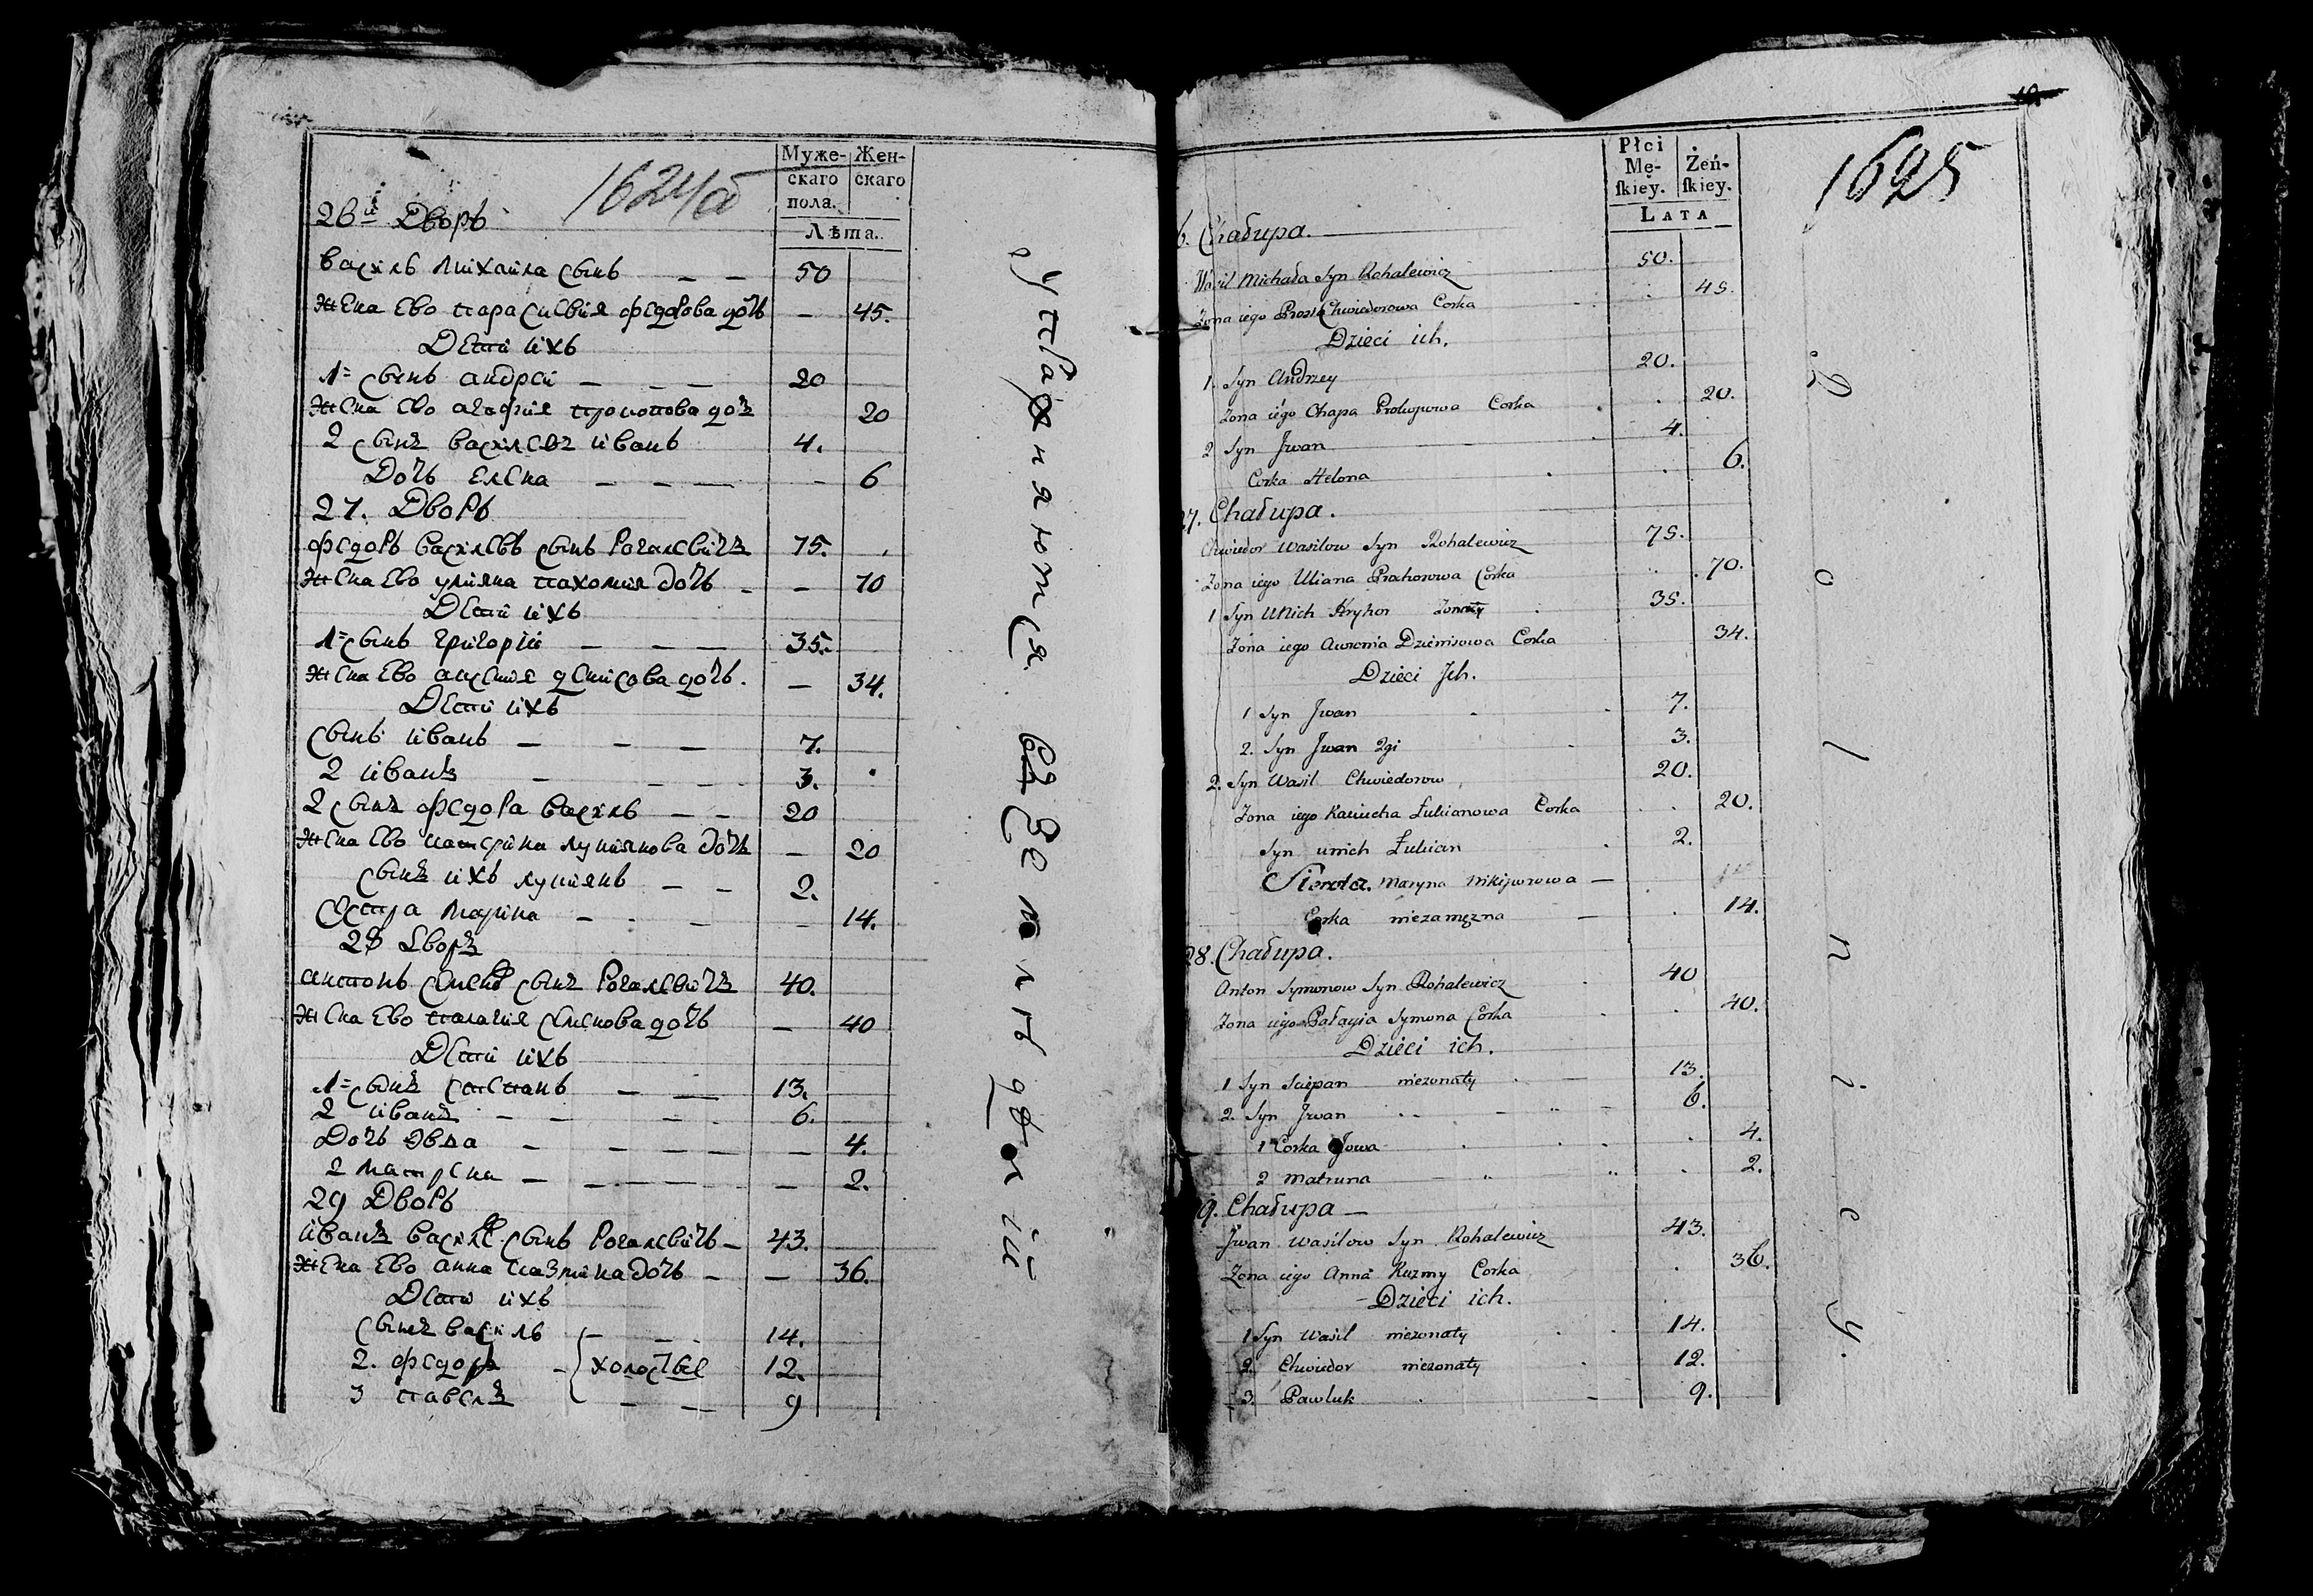 1624б
Муже-
скаго
пола.
Жен-
скаго
Лѣта.
26й Дворъ
Василь Михайла сынъ — — 50
Жена Ево Парасковія Федорова дочь — 45.
Дети ихъ
1= сынъ андрей — — — 20
Жена Ево агафия прокопова дочь 20
2 сынъ васильевъ иванъ 4.
Дочь Елена — — — — 6
27. Дворъ
Федоръ Василевъ сынъ Рогалевичъ 75.
Жена Ево ульяна пахомия дочь — — 70
Дети ихъ
1= сынъ григорій — — — 35.
Жена Ево денисова дочь. — 34.
Дети ихъ
сынъ иванъ — — — 7.
2 иванъ — — — 3.
2 сынъ федора василь — — 20
Жена Ево катерина лукиянова дочь — 20
сынъ ихъ лукиянъ — — 2.
сестра Марина — — — — 14.
28 Дворъ
антонъ семенов сынъ Рогалевичъ 40.
Жена Ево палагия семенова дочь — 40
Дети ихъ
1= сынъ степанъ — — 13.
2 иванъ — — — — 6.
Дочь Эва — — — — — 4.
2 Матрена — — — — — 2.
29 Дворъ
иванъ василев сынъ Рогалевичъ — 43.
Жена Ево анна казмина дочь — — 36.
Дети ихъ
сынъ василь — — — 14.
2. федоръ — холостые 12.
3 павелъ — — 9
упражняются въ земледѣліи
1625
Płci
Mę-
ſkiey.
Żeń-
ſkiey.
LATA
6. Chałupa.
Wasil Michała Syn Rohalewicz 50.
Zona iego Chwiedorowa Corka 45.
Dzieci ich.
1. Syn Andrzey 20.
Zona iego Chapa Prokopowa Corka 20.
2 Syn Jwan 4.
Corka Helona 6.
27. Chałupa.
Chwiedor Wasilow Syn Rohalewicz 75.
Zona iego Uliana Prachorowa Corka 70.
1 Syn Unich Hryhor Zonaty 35.
Zona iego Dzienisowa Corka 34.
Dzieci Jch.
1 Syn Jwan 7.
2. Syn Jwan 2gi 3.
2. Syn Wasil Chwiedorow 20.
Zona iego Łukianowa Corka 20.
Syn unich Łukian 2.
Sierota. Maryna Nikiporowa —
Corka niezamęzna — 14.
28. Chałupa.
Anton Symonow Syn Rohalewicz 40
Zona iego Pałagia Symona Corka 40.
Dzieci ich.
1 Syn Sciepan niezonaty 13.
2. Syn Jwan 6.
1 Corka Jowa 4.
2 Matruna 2.
9. Chałupa —
Jwan Wasilow Syn Rohalewicz 43.
Zona iego Anna Kuzmy Corka 36.
Dzieci ich.
1 Syn Wasil niezonaty 14.
2. Chwiedor niezonaty 12.
3. Pawluk 9.
Rolnicy.